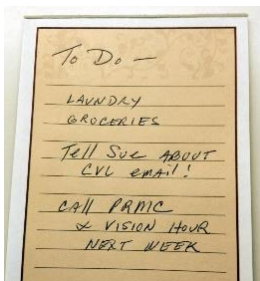 To Do —
LAUNDRY
GROCERIES
Tell Sue ABOUT
CVL email!
CAll PRMC
& VISION HOUR
NEXT WEEK